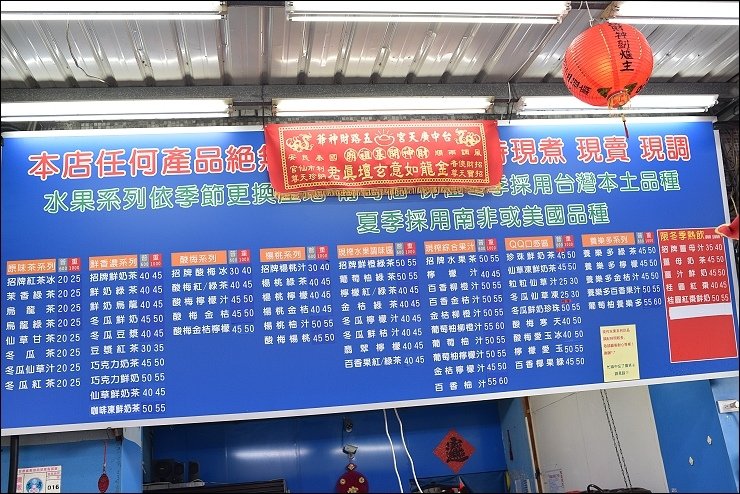 財神副爐主
本店任何產品絕
現煮 現賣 現調
水果系列依季節更換產地
採用台灣本土品種
夏季採用南非或美國品種
台中廣天宮五路財神爺
財神開基祖廟
金龍如意玄壇真君
原味茶系列
招牌紅茶冰 20 25
茉香綠茶 20 25
烏龍茶 20 25
烏龍綠茶 20 25
仙草甘茶 20 25
冬瓜茶 20 25
冬瓜仙草汁 20 25
冬瓜紅茶 20 25
鮮香濃系列
招牌鮮奶茶 40 45
鮮奶綠茶 40 45
鮮奶烏龍 40 45
冬瓜鮮奶 40 45
冬瓜豆漿 40 45
豆漿紅茶 30 35
巧克力奶茶 45 50
巧克力鮮奶 50 55
仙草鮮奶茶 40 45
咖啡凍鮮奶茶 50 55
酸梅系列
招牌酸梅冰 30 40
酸梅紅/綠茶 30 40
酸梅檸檬汁 45 50
酸梅金桔汁 45 50
酸梅金桔檸檬 45 50
楊桃系列
招牌楊桃汁 30 40
楊桃綠茶 40 45
楊桃檸檬 40 45
楊桃金桔 40 45
楊桃柚汁 50 55
酸梅楊桃 40 45
現榨水果調味茶
招牌鮮橙綠茶 50 55
葡萄柚綠茶 50 55
檸檬紅/綠茶 40 45
金桔綠茶 40 45
冬瓜檸檬 40 45
冬瓜鮮桔汁 40 45
翡翠檸檬 40 45
百香果紅/綠茶 40 45
現榨綜合果汁
招牌水果茶 50 55
檸檬汁 40 45
百香檸檬汁 50 55
百香金桔汁 50 55
百香柳橙汁 50 55
葡萄柚柳橙汁 55 60
葡萄柚汁 50 55
葡萄柚檸檬汁 50 55
金桔檸檬汁 45 50
百香柚汁 55 60
QQ口感區
珍珠鮮奶茶 45 50
仙草凍鮮奶茶 45 50
粒粒仙草汁 25 30
冬瓜仙草凍 25 30
冬瓜鮮奶珍珠 50 55
酸梅寒天 40 50
酸梅愛玉冰 40 50
檸檬愛玉 50 55
百香椰果綠 45 50
養樂多系列
養樂多綠茶 45 50
養樂多檸檬 45 50
養樂多金桔汁 45 50
養樂多百香果汁 50 55
葡萄柚養樂多 55 60
限冬季熱飲
招牌薑母汁 35 40
薑母奶茶 45 50
薑汁鮮奶 45 50
桂圓紅棗 40 50
桂圓紅棗鮮奶 50 55
016